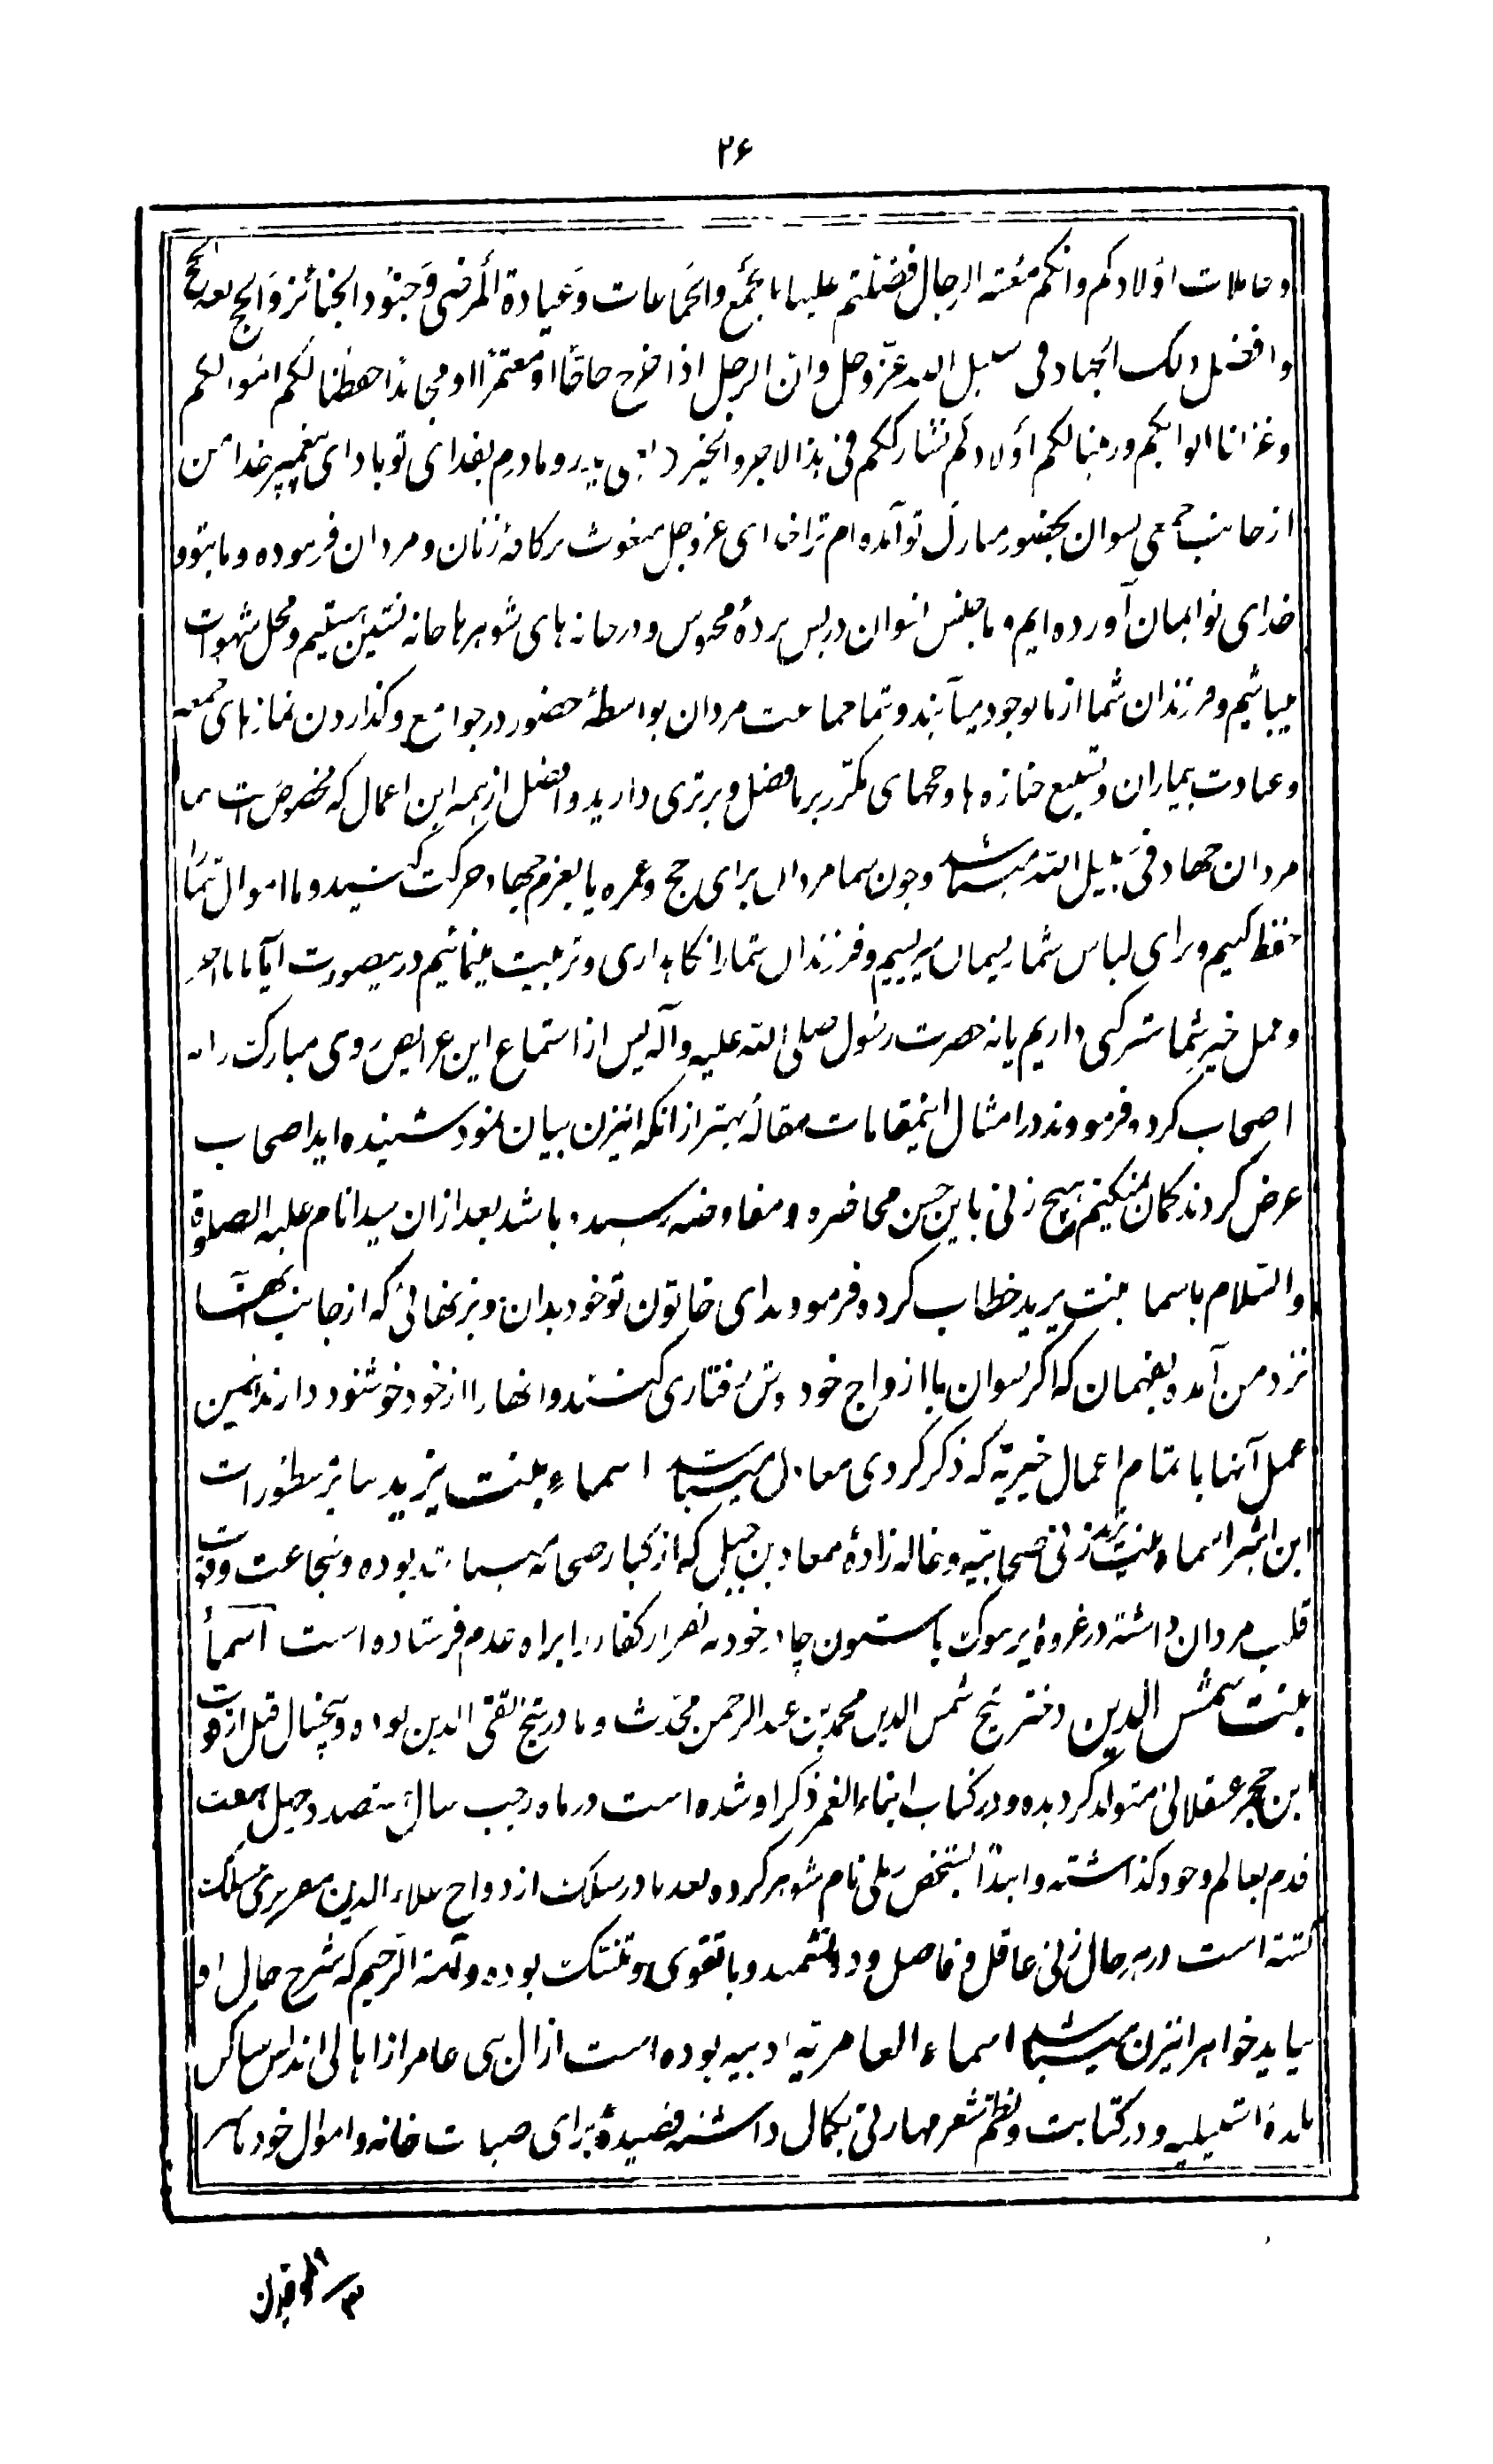 ۲۶
و حاملات اولادکم و انکم معشر الرجال فضلتم علینا بالجمع و الجماعات و عیادة المرضی و جنود الجنائز و الحج بعد الحج
و افضل ذلک الجهاد فی سبیل الله عزّ و جل و ان الرجل اذا خرج حاجّا او معتمرا او مجاهدا حفظنا لکم اموالکم
و غزلنا اثوابکم و ربینا لکم اولادکم نشارککم فی هذا الاجر و الخیر (انتهی) پدر و مادرم بفدای تو باد ای پیغمبر خدا من
از جانب جمعی نسوان بحضور مبارک تو آمده‌ام ترا خدای عز و جل مبعوث بر کافهٔ زنان و مردان فرموده و ما بتو و
خدای تو ایمان آورده‌ایم و ما جنس نسوان در پس پردهٔ محبوس و در خانه‌های شوهرها خانه نشین هستیم و محل شهوات
میباشیم و فرزندان شما از ما بوجود میآیند و شما جماعت مردان بواسطهٔ حضور در جوامع و گذاردن نمازهای جمعه
و عیادت بیماران و تشییع جنازه‌ها و حجهای مکرّر بر ما فضل و برتری دارید و افضل از همه این اعمال که مخصوص است بشما
مردان جهاد فی سبیل الله میباشد و چون شما مردان برای حج و عمره یا بعزم جهاد حرکت کنید و ما اموال شما را
حفظ کنیم و برای لباس شما ریسمان میریسیم و فرزندان شما را نگاهداری و تربیت مینمائیم در اینصورت آیا ما با اجر
و عمل خیر شما شرکتی داریم یا نه حضرت رسول صلی الله علیه و آله پس از استماع این عرایض روی مبارک را به
اصحاب کرده فرمودند در امثال اینمقامات مقالهٔ بهتر از آنکه اینزن بیان نمود شنیده‌اید اصحاب
عرض کردند گمان نمیکنیم هیچ زنی باین حسن محاضره و مفاوضه رسیده باشد بعد از ان سید انام علیه الصلوة
و السّلام باسما بنت یزید خطاب کرده فرمودند ای خاتون تو خود بدان و بزنهائی که از جانب آنها
نزد من آمدهٔ بفهمان که اگر نسوان با ازواج خود خوش رفتاری کنند و انها را از خود خوشنود دارند همین
عمل آنها با تمام اعمال خیریّه که ذکر کردی معادل میباشد اسماء بنت یزید بنابر مسطورات
ابن اثیر اسماء بنت یزید زنی صحابیّه و خاله زادهٔ معاذ بن جبل که از کبار صحابه میباشد بوده و شجاعت و قوت
قلب مردان داشته در غزوهٔ یرموک با ستون چادر خود نه نفر از کفار را براه عدم فرستاده است اسمأ
بنت شمس الدین دختر شیخ شمس الدین محمد بن عبد الرحمن محدّث و مادر شیخ تقی الدین بوده و پنجسال قبل از فوت
ابن حجر عسقلانی متولد گردیده و در کتاب انباء الغمر ذکر او شده است در ماه رجب سال هشتصد و چهل هفت
قدم بعالم وجود گذاشته و ابتدأ بشخص علی نام شوهر کرده بعدها در سلک ازدواج علاء الدین منسلک
گشته است در هر حال زنی عاقل و فاضل و دانشمند و با تقوی و تنسّک بوده و آمنة الرحیم که شرح حال او
بیاید خواهر اینزن میباشد اسماء العامریّه ادیبه بوده است از ال بنی عامر از اهالی اندلس ساکن
بلدهٔ اشبیلیه و در کتابت و نظم شعر مهارتی بکمال داشته قصیدهٔ برای صیانت خانه و اموال خود بامیر